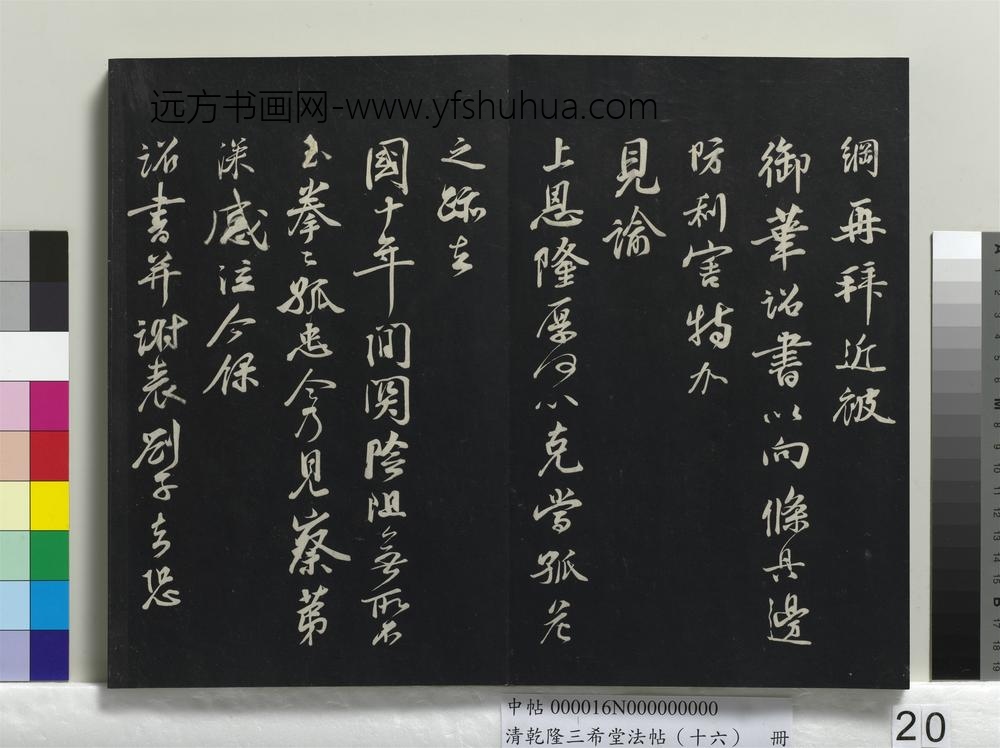 远方书画网-www.yfshuhua.com
綱再拜近被
御筆詔書以向條具邊
防利害特加
見諭
上恩隆厚何以克當孤危
之跡去
國十年間関險阻無所不
至拳〻孤忠今乃見察第
深感泣今錄
詔書并謝表劄子去恐
中帖 000016N000000000
清乾隆三希堂法帖（十六） 冊
20